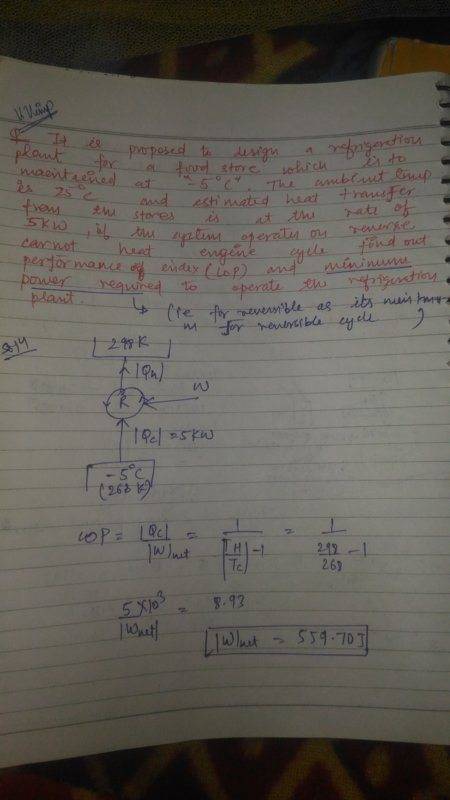 V.V.imp
Q It is proposed to design a refrigeration
plant for a food store which is to
maintained at "-5°C". The ambient temp
is 25°C and estimated heat transfer
from the stores is at the rate of
5KW, if the system operates on reverse
carnot heat engine cycle find out
performance of index (COP) and minimum
power required to operate the refrigeration
plant.
(i.e for reversible as its
for reversible cycle )
Sol^n
298K
|QH|
R
W
|Qc| = 5KW
-5°C
(268K)
COP = |Qc| / |W|net = 1 / [TH/Tc] -1 = 1 / 298/268 -1
5×10³ / |Wnet| = 8.93
|W|net = 559.70J